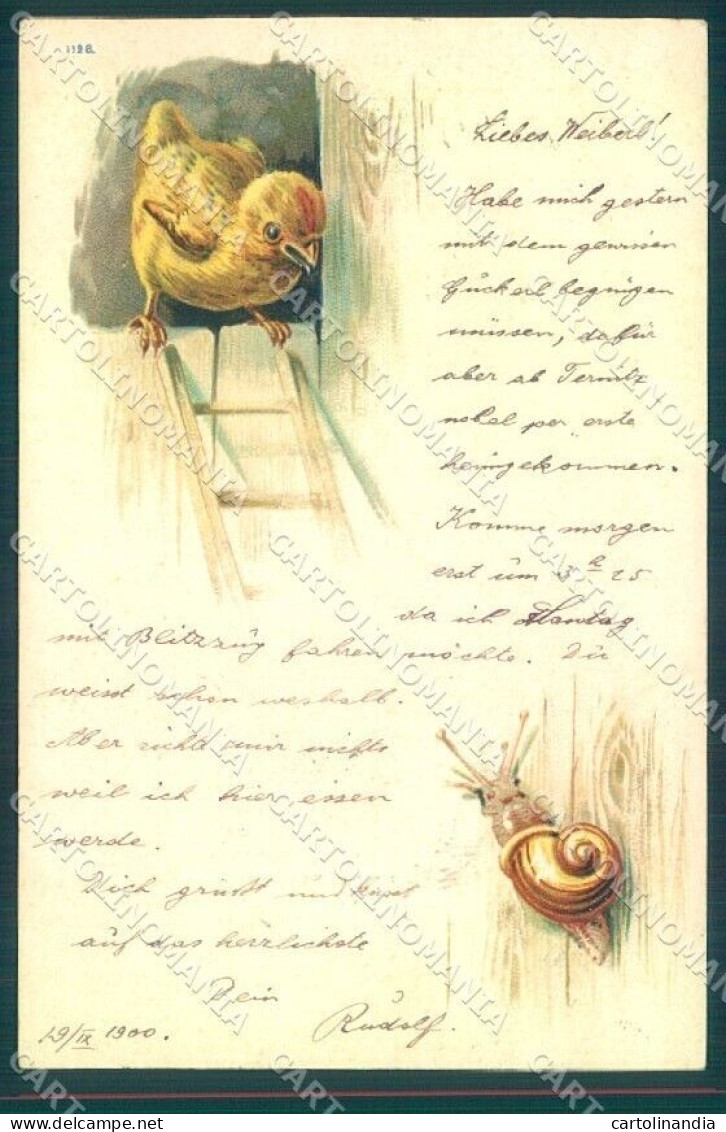 1126.
Liebes Weiberl!
Habe mich gestern
mit dem gewissen
Guckerl begnügen
müssen, dafür
aber ab Ternitz
nobel per "erste
heimgekommen.
Komme morgen
erst um 3 h 25
da ich Montag
mit Blitzzug fahren möchte. Du
weisst schon weshalb.
Aber richt mir nichts
weil ich hier essen
werde.
Dich grüsst und küsst
auf das herzlichste
Dein
Rudolf.
29/IX 1900.
CARTOLINOMANIA
cartolinandia